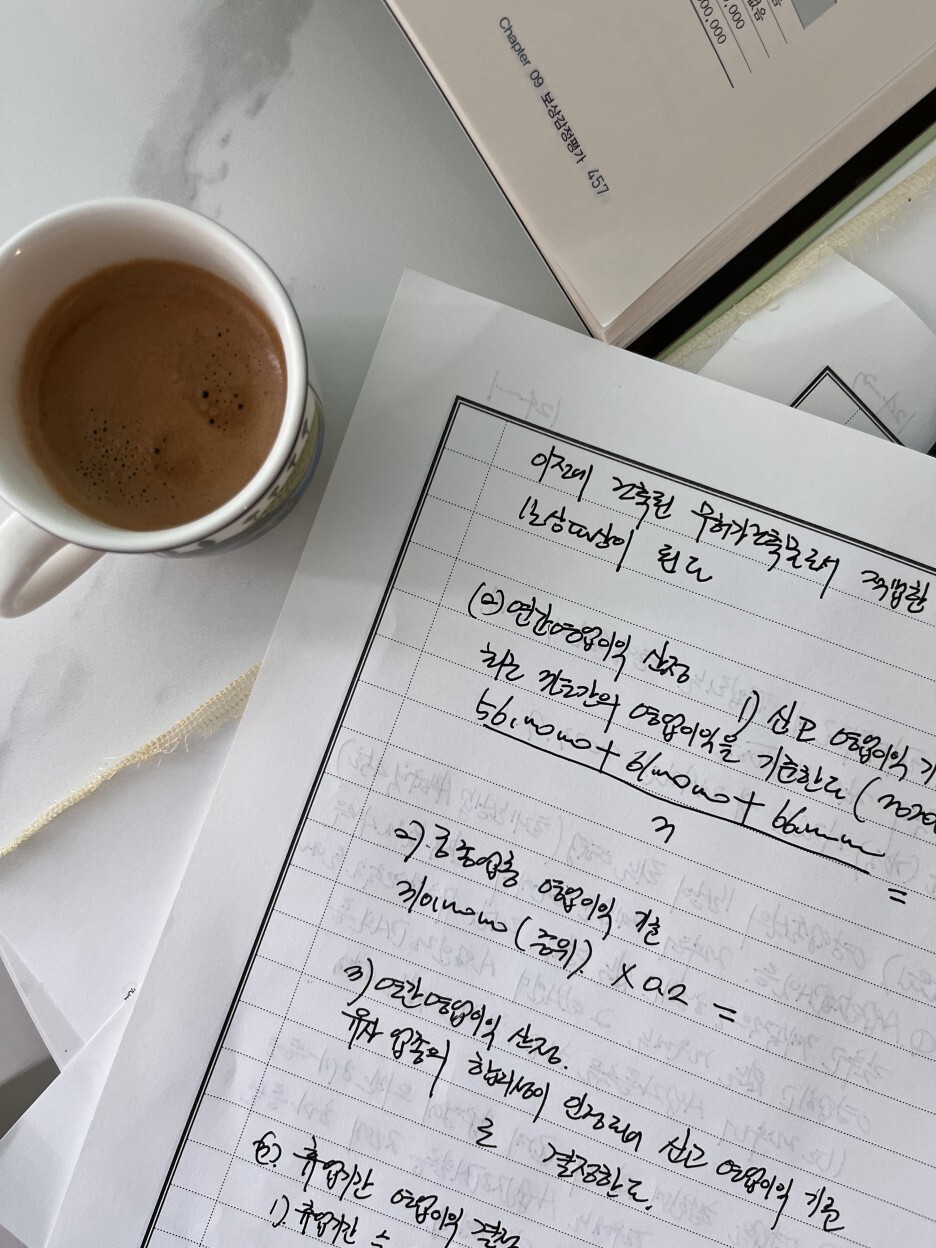 없음
,000
000,000
Chapter 09 보상감정평가 457
이전에 건축된 무허가건축물로서 적법한
보상대상이 된다
(2) 연간영업이익 산정
1) 신고 영업이익 기
최근 3년간의 영업이익을 기준한다 (2020
+ +
3
=
2). 동종업종 영업이익 기준
(중위). × 0.2 =
3) 연간영업이익 산정.
유사 업종의 합리성이 인정되어 신고 영업이익 기준
로 결정한다.
(3). 휴업기간 영업이익 결정
1). 휴업기간 :